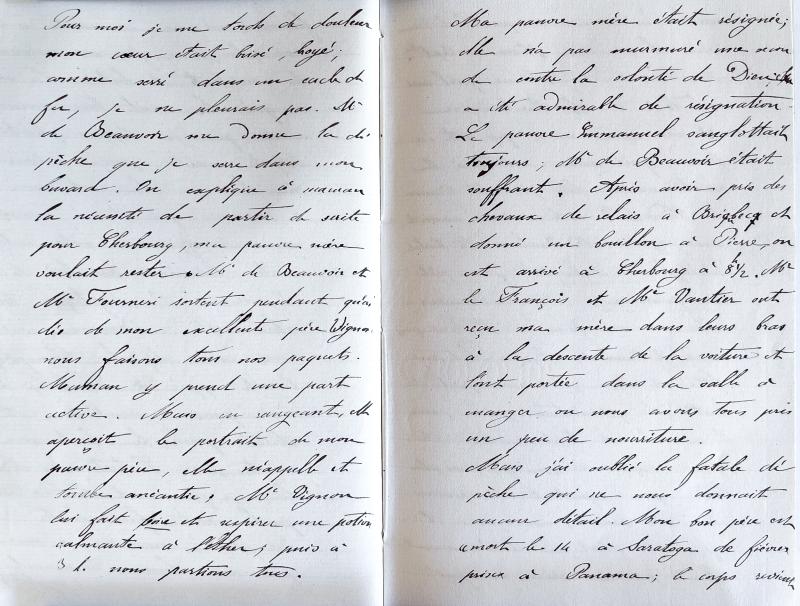 Pour moi je me tords de douleur
mon cœur était brisé, broyé;
comme serré dans un cercle de
fer, je ne pleurais pas. Mr
de Beauvoir me donne la dé
pêche que je serre dans mon
buvard. On explique à maman
la nécessité de partir de suite
pour Cherbourg, ma pauvre mère
voulait rester. Mr de Beauvoir et
Mr Fourneri sortent pendant qu'ai
dés de mon excellent père Vignon
nous faisons tous nos paquets.
Maman y prend une part
active. Mais en rangeant, elle
aperçoit le portrait de mon
pauvre père, elle m'appelle et
tombe anéantie, Mr Vignon
lui fait boire et respirer une potion
calmante à l'éther; puis à
3 h. nous partions tous.
Ma pauvre mère était résignée;
elle n'a pas murmuré une secon
de contre la volonté de Dieu, elle
a été admirable de résignation.
Le pauvre Emmanuel sanglottait
toujours; Mr de Beauvoir était
souffrant. Après avoir pris des
chevaux de relais à Bricquebecq et
donné un bouillon à Pierre, on
est arrivé à Cherbourg à 8h 1/2. Mr
le François et Mr Vautier ont
reçu ma mère dans leurs bras
à la descente de la voiture et
l'ont portée dans la salle à
manger où nous avons tous pris
un peu de nourriture.
Mais j'ai oublié la fatale dé
pêche qui ne nous donnait
aucun détail. Mon bon père est
mort le 14 à Saratoga de fièvres
prises à Panama; le corps revient